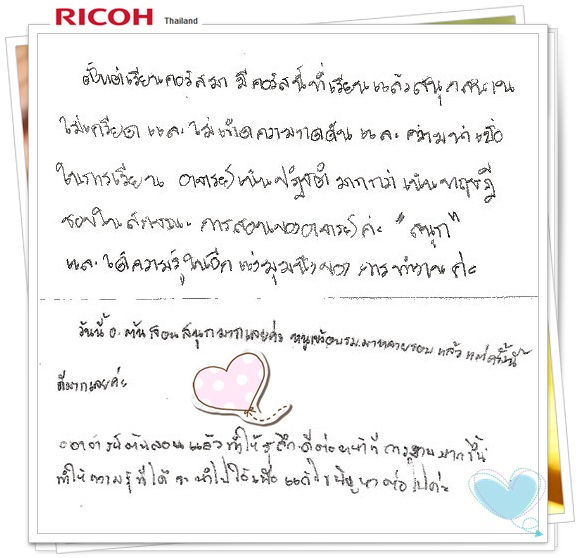 RICOH Thailand
ตั้งแต่เรียนคอร์สมา มีคอร์สนี้ที่เรียนแล้วสนุกสนาน
ไม่เครียด และ ไม่เกิดความกดดัน และ ความน่าเบื่อ
ในการเรียน อาจารย์เน้นปฏิบัติ มากกว่า เน้นทฤษฎี
ชอบในลักษณะ การสอนของอาจารย์ ค่ะ "สนุก"
และ ได้ความรู้ในอีก แง่มุมนึงของ การทำงาน ค่ะ
วันนี้ อ. ต้น สอน สนุก มากเลยค่ะ หนูเข้าอบรม มาหลายรอบ แล้ว แต่ครั้งนี้
ดีมากเลยค่ะ
อาจารย์ต้นสอน แล้วทำให้รู้สึกดีต่อหน้าที่ การงาน มากขึ้น
ทำให้ความรู้ที่ได้ จะนำไปใช้เพื่อ แก้ไขปัญหาต่อไปค่ะ